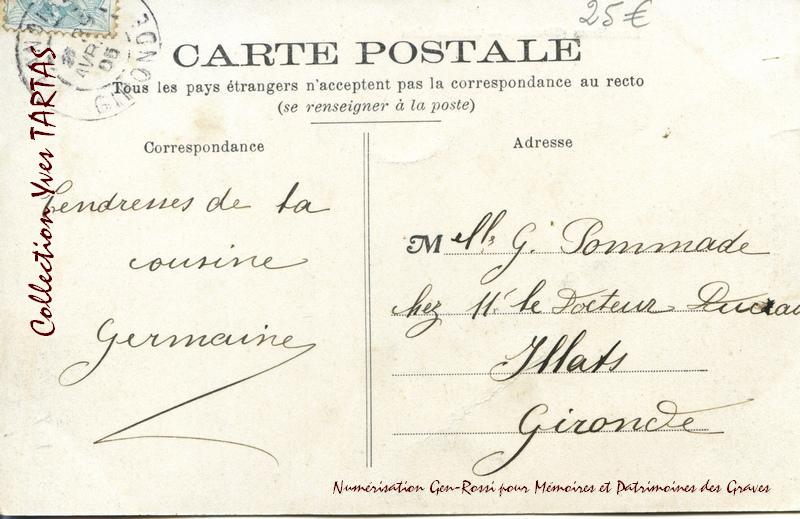 25 €
AVR
05
GIRONDE
CARTE POSTALE
Tous les pays étrangers n'acceptent pas la correspondance au recto
(se renseigner à la poste)
Correspondance
Tendresses de ta
cousine
Germaine
Adresse
Melle G. Pommade
chez Mr le Docteur
Illats
Gironde
Collection Yves TARTAS
Numérisation Gen-Rossi pour Mémoires et Patrimoines des Graves